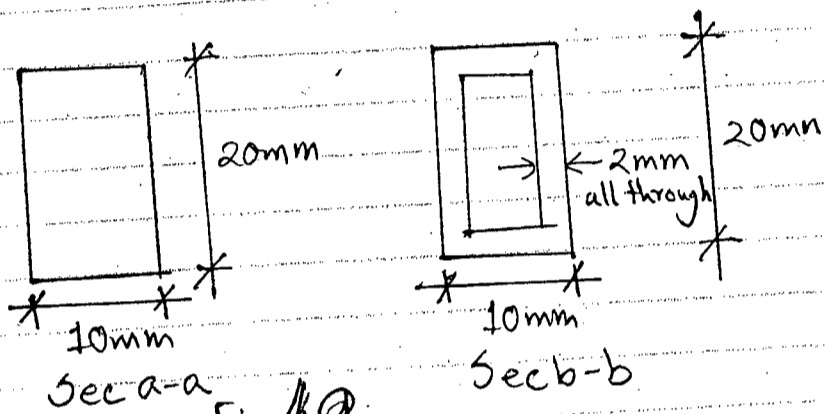 20mm
10mm
Sec a-a
2mm
all through
20mm
10mm
Sec b-b